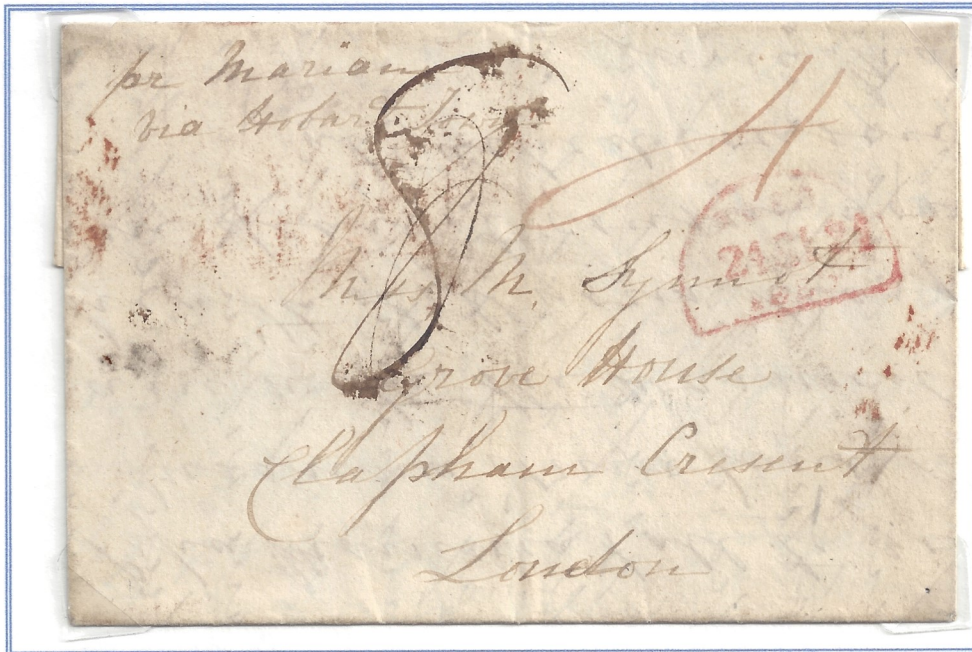 pr Marian
via Hobart
8
4
24 DE 24
Miss M. Symnot
Grove House
Clapham Cresent
London